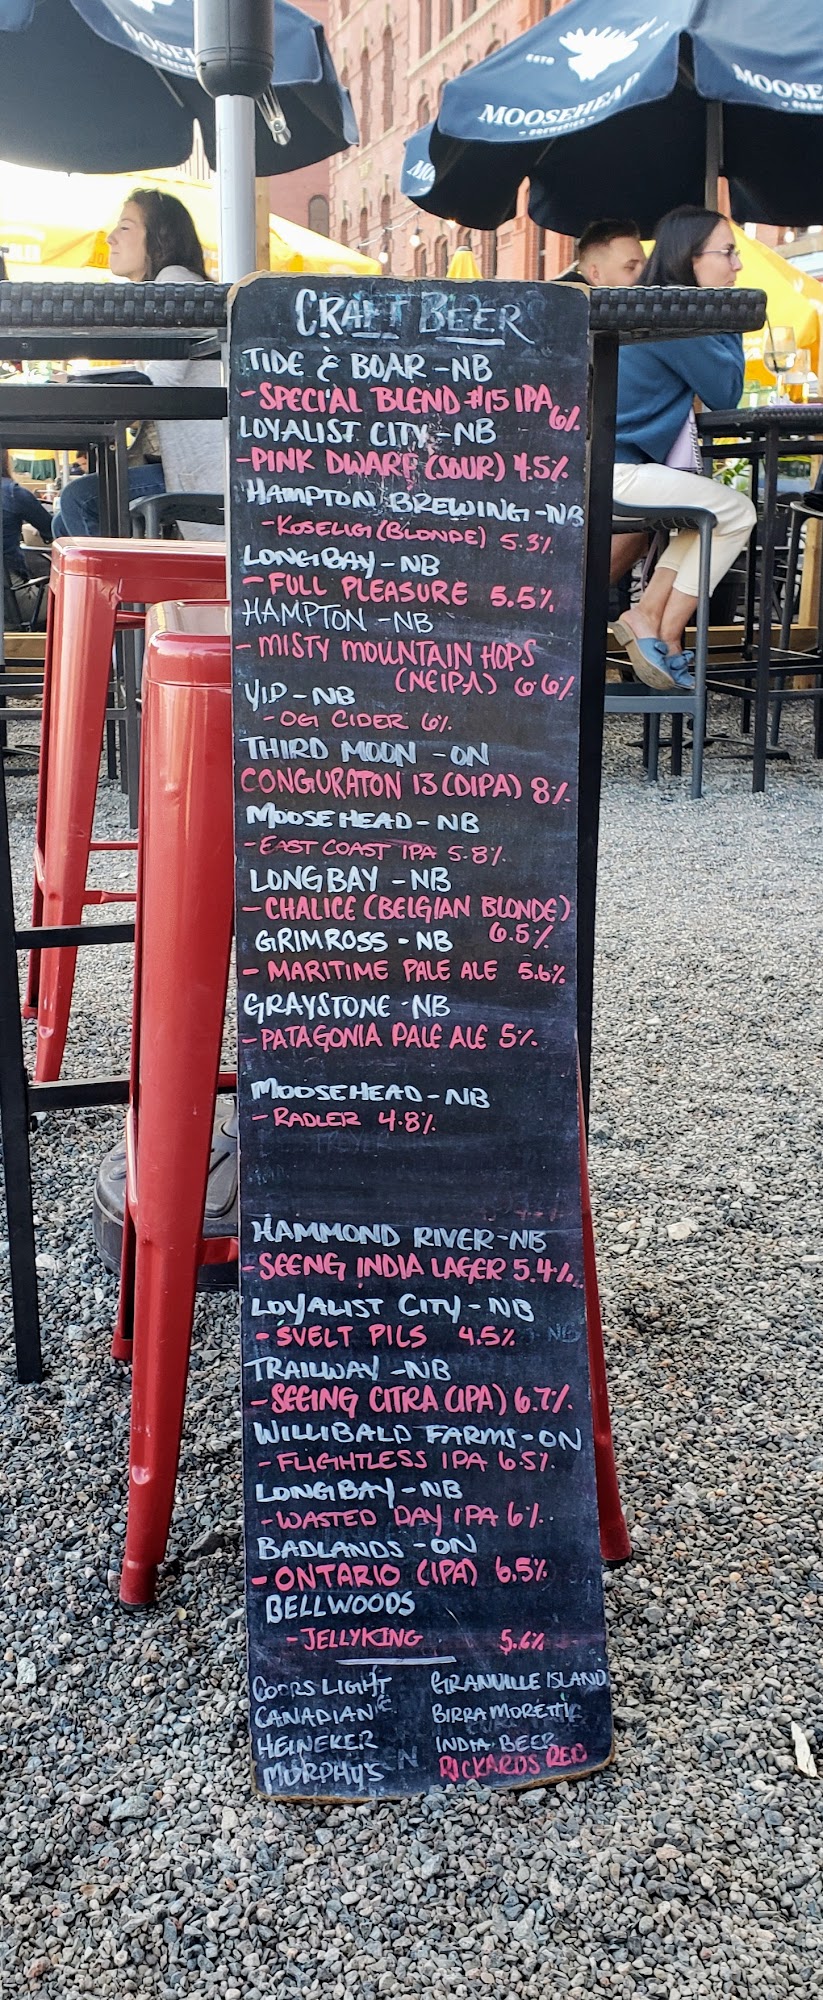 OOSEHEAD
BREWERIES
ESTD
MOOSEHEAD
BREWERIES
MOOSE
CRAFT BEER
TIDE & BOAR - NB
- SPECIAL BLEND #15 IPA 6%
LOYALIST CITY - NB
- PINK DWARF (SOUR) 4.5%
HAMPTON BREWING - NB
- KOSELIG (BLONDE) 5.3%
LONGBAY - NB
- FULL PLEASURE 5.5%
HAMPTON - NB
- MISTY MOUNTAIN HOPS
(NEIPA) 6.6%
YIP - NB
- OG CIDER 6%
THIRD MOON - ON
CONGURATON 13 (DIPA) 8%
MOOSEHEAD - NB
- EAST COAST IPA 5.8%
LONGBAY - NB
- CHALICE (BELGIAN BLONDE)
6.5%
GRIMROSS - NB
- MARITIME PALE ALE 5.6%
GRAYSTONE - NB
- PATAGONIA PALE ALE 5%
MOOSEHEAD - NB
- RADLER 4.8%
HAMMOND RIVER - NB
- SEENG INDIA LAGER 5.4%
LOYALIST CITY - NB
- SVELT PILS 4.5%
TRAILWAY - NB
- SEEING CITRA (IPA) 6.7%
WILLIBALD FARMS - ON
- FLIGHTLESS IPA 6.5%
LONGBAY - NB
- WASTED DAY IPA 6%
BADLANDS - ON
- ONTARIO (IPA) 6.5%
BELLWOODS
- JELLYKING 5.6%
COORS LIGHT GRANVILLE ISLAND
CANADIAN BIRRA MORETTI
HEINEKER INDIA BEER
MURPHYS RICKARDS RED